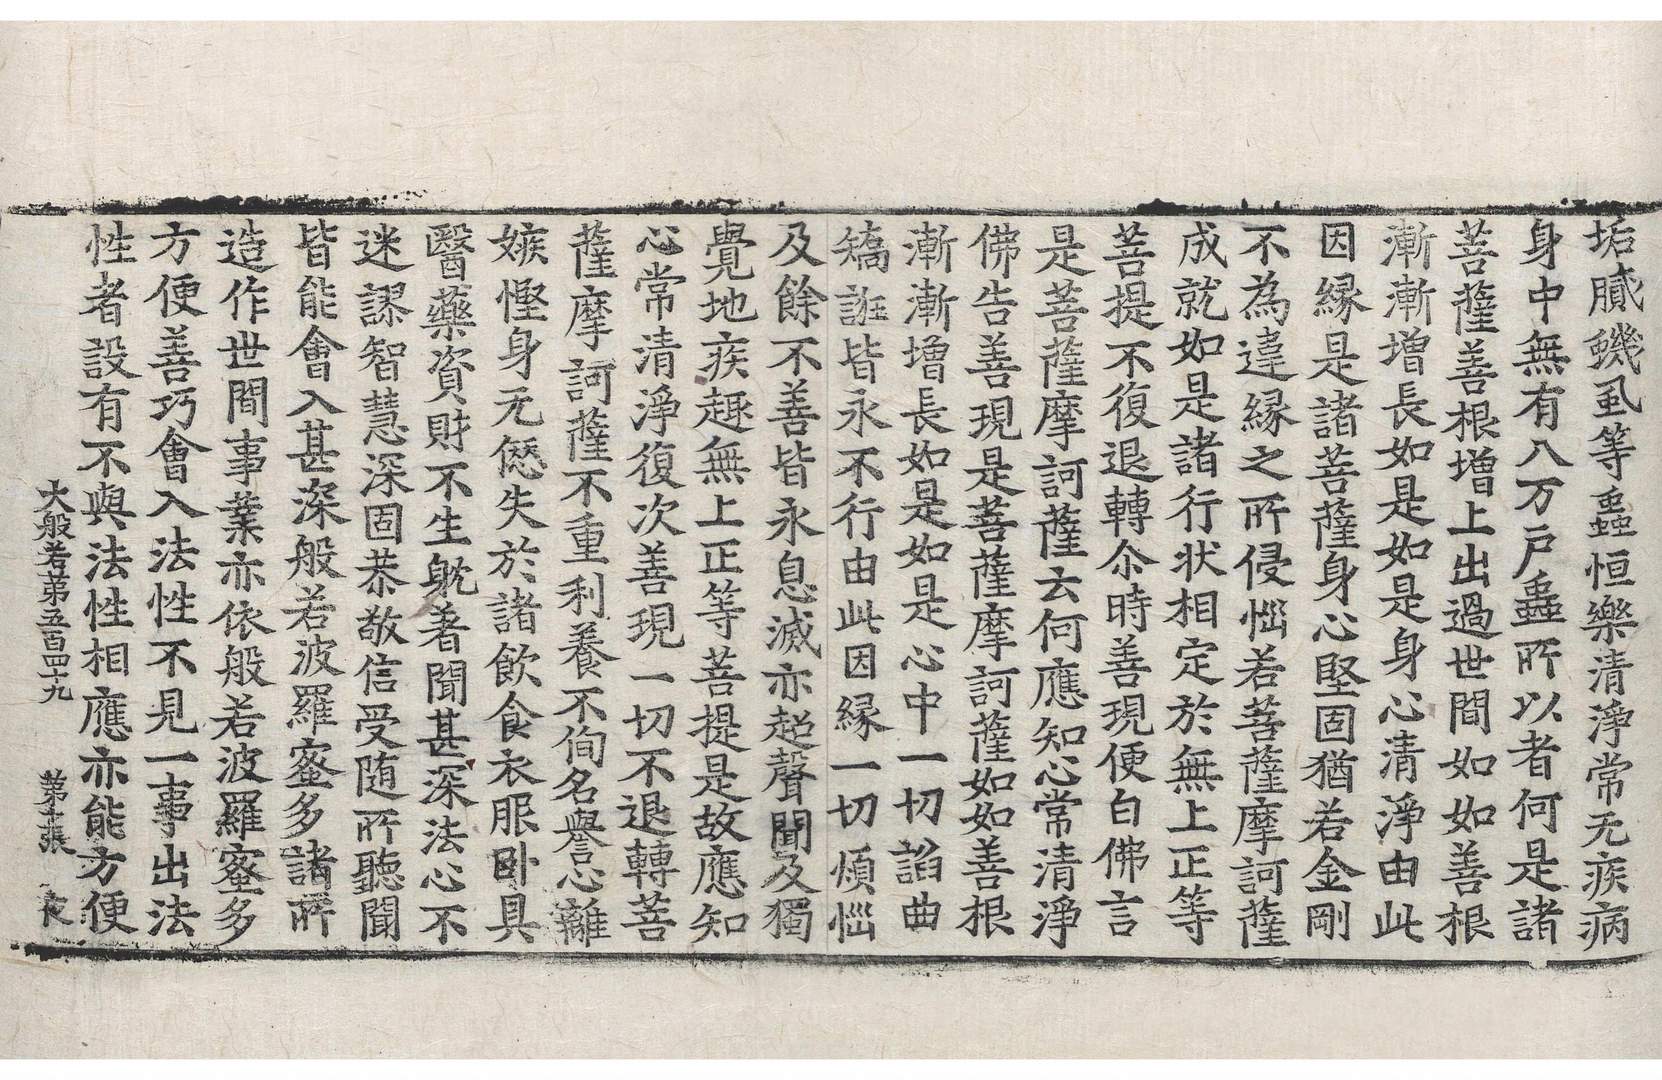 垢膩蟣虱等蟲恒樂清淨常无疾病
身中無有八万戶蟲所以者何是諸
菩薩善根增上出過世間如如善根
漸漸增長如是如是身心清淨由此
因緣是諸菩薩身心堅固猶若金剛
不為違緣之所侵惱若菩薩摩訶薩
成就如是諸行狀相定於無上正等
菩提不復退轉尒時善現便白佛言
是菩薩摩訶薩云何應知心常清淨
佛告善現是菩薩摩訶薩如如善根
漸漸增長如是如是心中一切諂曲
矯誑皆永不行由此因緣一切煩惱
及餘不善皆永息滅亦超聲聞及獨
覺地疾趣無上正等菩提是故應知
心常清淨復次善現一切不退轉菩
薩摩訶薩不重利養不徇名譽心離
嫉慳身无愆失於諸飲食衣服卧具
醫藥資財不生躭著聞甚深法心不
迷謬智慧深固恭敬信受随所聽聞
皆能會入甚深般若波羅蜜多諸所
造作世間事業亦依般若波羅蜜多
方便善巧會入法性不見一事出法
性者設有不與法性相應亦能方便
大般若第五百四十九 第十張